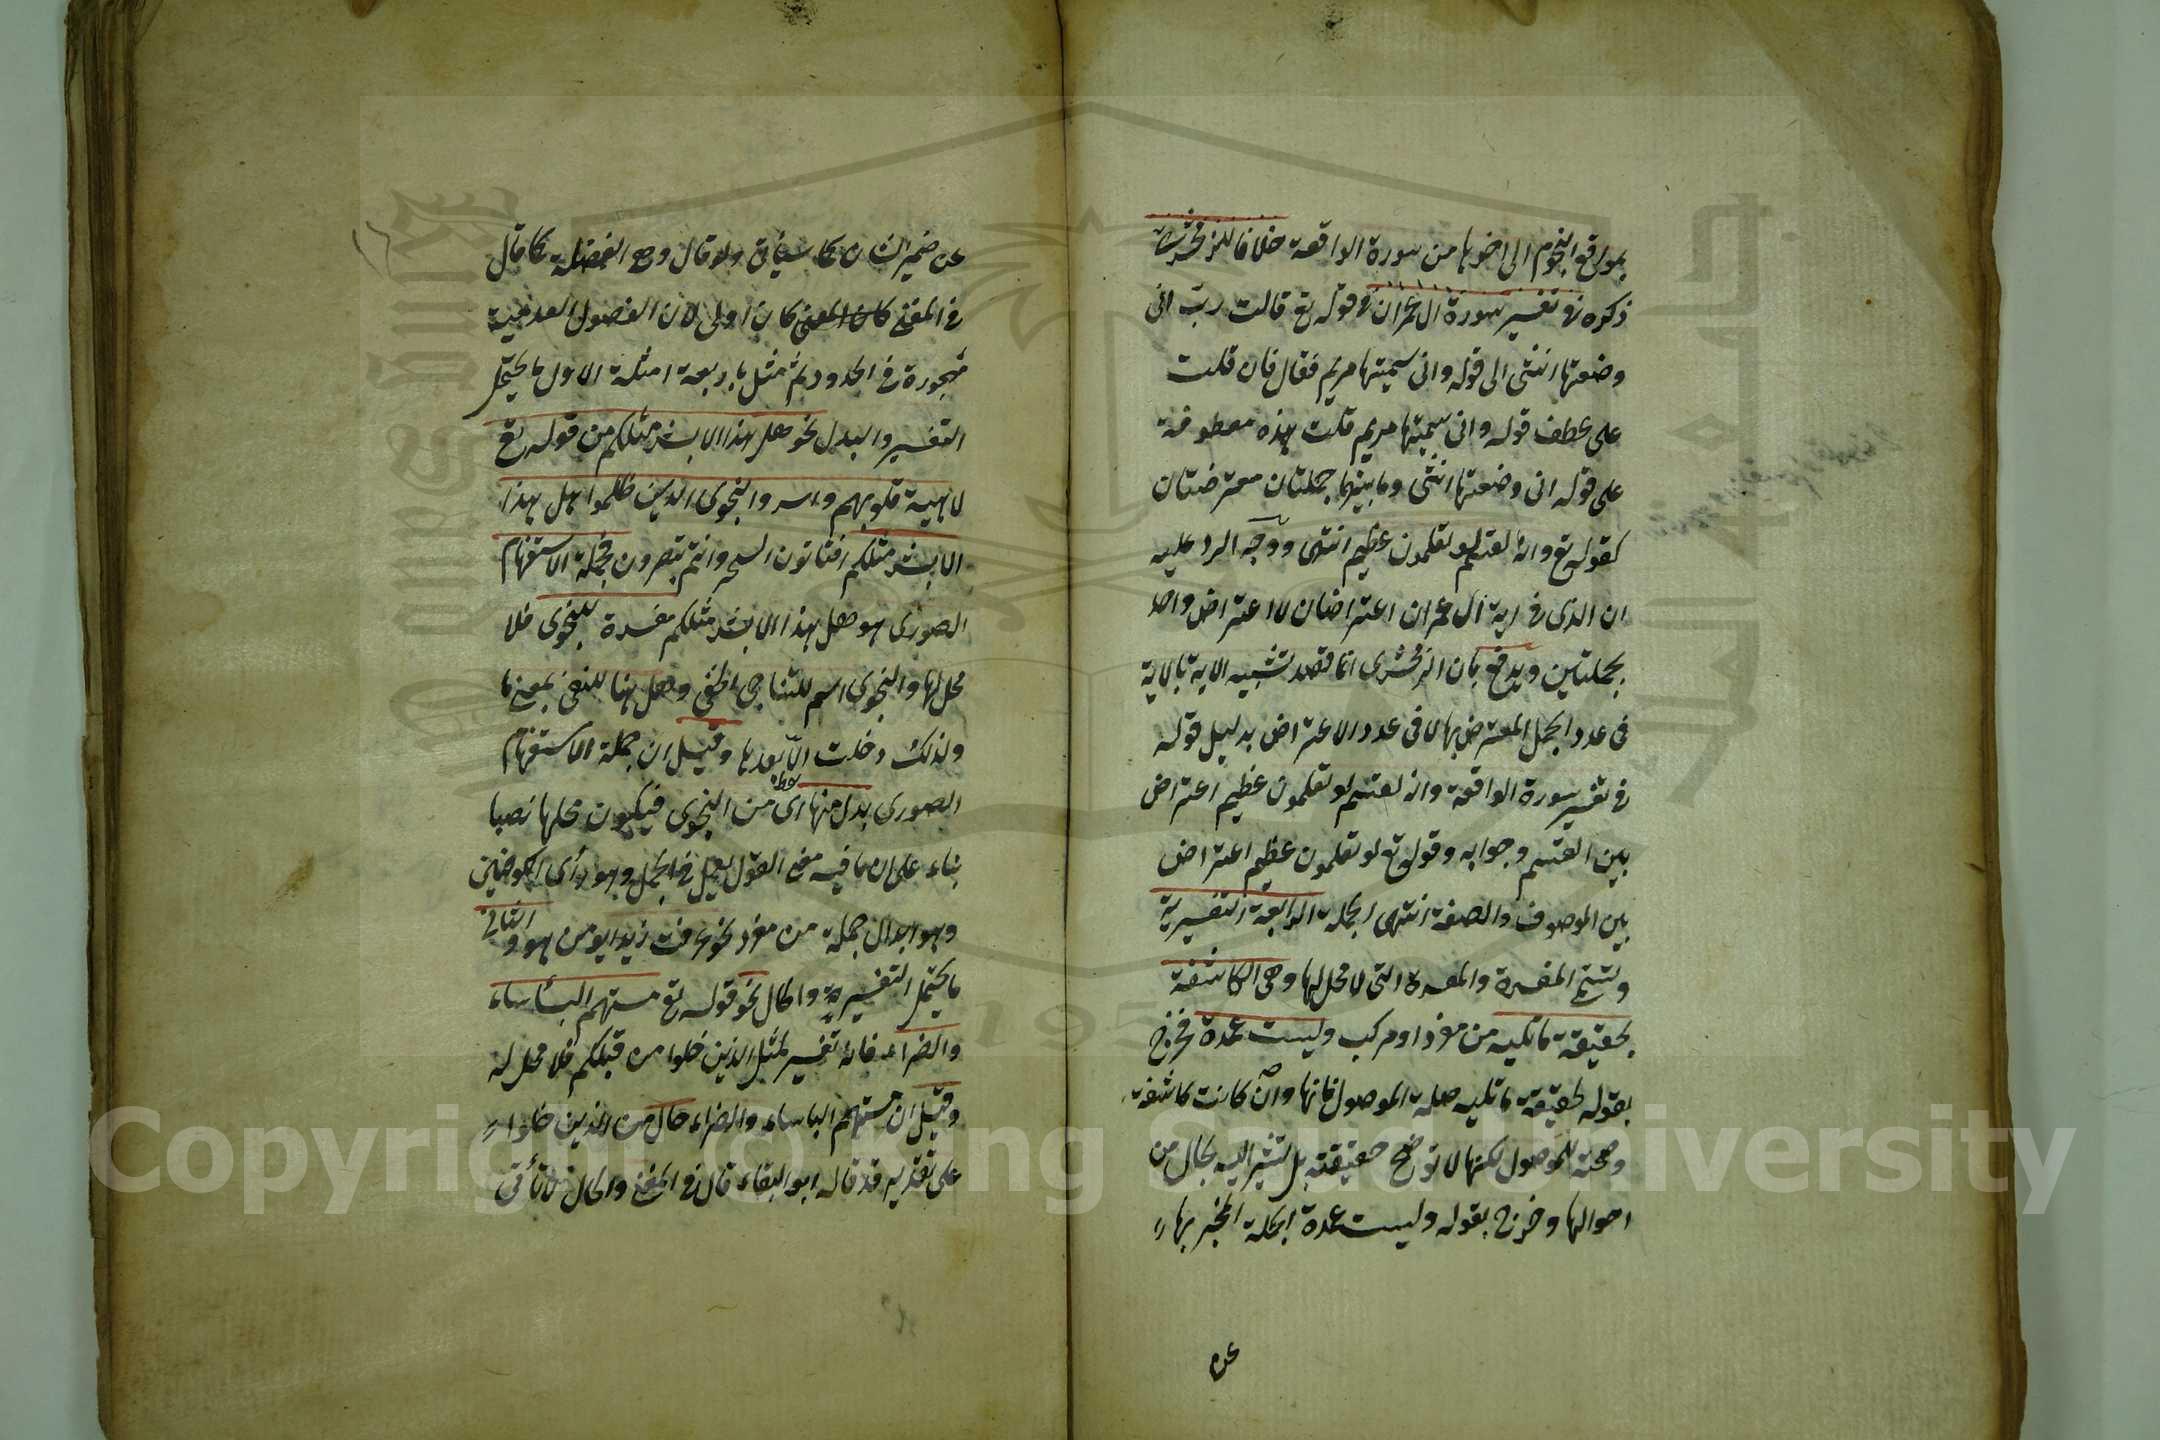 بمواقع النجوم الى اخرها من سورة الواقعة خلافا للزمخشرى
ذكره فى تفسير سورة ال عمران فى قوله تع قالت رب انى
وضعتها انثى الى قوله وانى سميتها مريم فقال فان قلت
على عطف قوله وانى سميتها مريم قلت هذه معطوفة
على قوله انى وضعتها انثى وما بينهما جملتان معترضتان
كقوله تع وانه لقسم لو تعلمون عظيم انتهى ووجه الرد عليه
ان الذى فى اية آل عمران اعتراضان لا اعتراض واحد
بجملتين ويدفع بان الزمخشرى انما قصد تشبيه الاية بالاية
فى عدد الجمل المعترض بها لا فى عدد الاعتراض بدليل قوله
فى تفسير سورة الواقعة وانه لقسم لو تعلمون عظيم اعتراض
بين القسم وجوابه وقوله تع لو تعلمون عظيم اعتراض
بين الموصوف والصفة انتهى الجملة الرابعة التفسيرية
وتسمى المفسرة والمفسرة التى لا محل لها وهى الكاشفة
بحقيقة ما تليه من مفرد او مركب وليست عمدة فخرج
بقوله لحقيقة ما تليه صلة الموصول فانها وان كانت كاشفة
وموضحة للموصول لكنها لا توضح حقيقته بل تشير اليه بحال من
احوالها وخرج بقوله وليست عمدة الجملة المخبر بها
عن
عن ضمير الشان كما سيأتى ولو قال وهى الفضلة كما قال
فى المغنى كان اولى لان الفصول العدمية
مهجورة فى الحدود ثم مثل باربعة امثلة الاول ما يحتمل
التفسير والبدل نحو هل هذا الا بشر مثلكم من قوله تع
لاهية قلوبهم واسروا النجوى الذين ظلموا هل هذا
الا بشر مثلكم افتاتون السحر وانتم تبصرون فجملة الاستفهام
الصورى هو هل هذا الا بشر مثلكم مفسرة للنجوى فلا
محل لها والنجوى اسم للتناجى الخفى وهل هنا للنفى بمعنى ما
ولذلك دخلت الا بعدها وقيل ان جملة الاستفهام
الصورى بدل منها اى من النجوى فيكون محلها نصبا
بناء على ان ما فيه معنى القول يعمل فى الجمل وهو رأى الكوفيين
وهو ابدال جملة من مفرد نحو عرفت زيدا ابو من هو والثانى
ما يحتمل التفسيرية والحال نحو قوله تع مستهم البأساء
والضراء فانه تفسير لمثل الذين خلوا من قبلكم فلا محل له
وقيل ان مستهم الباساء والضراء حال من الذين خلوا
على تقدير قد قاله ابو البقاء قال فى المغنى والحال لا تأتى
Copyright © King Saud University